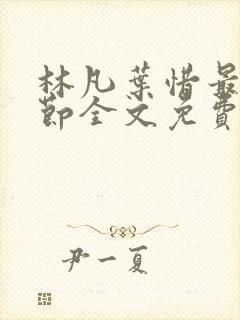 林凡葉惜最
節全文免費
尹一夏